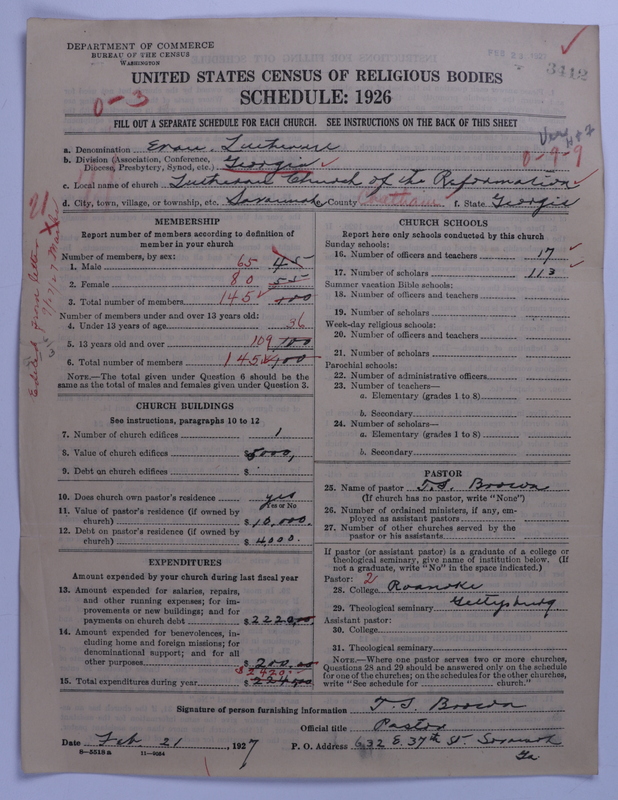 DEPARTMENT OF COMMERCE
BUREAU OF THE CENSUS
WASHINGTON
FEB 23
3412
UNITED STATES CENSUS OF RELIGIOUS BODIES
SCHEDULE: 1926
0-3
FILL OUT A SEPARATE SCHEDULE FOR EACH CHURCH. SEE INSTRUCTIONS ON THE BACK OF THIS SHEET
0-9-9
a. Denomination Evan. Lutheran
b. Division (Association, Conference, Diocese, Presbytery, Synod, etc.) Georgia
c. Local name of church Lutheran Church of the Reformation
d. City, town, village, or township, etc. Savannah County Chatham f. State Georgia
MEMBERSHIP
Report number of members according to definition of
member in your church
Number of members, by sex:
1. Male 65 45
2. Female 80 55
3. Total number of members 145 100
Number of members under and over 13 years old:
4. Under 13 years of age 36
5. 13 years old and over 109 100
6. Total number of members 145 100
NOTE.—The total given under Question 6 should be the
same as the total of males and females given under Question 3.
CHURCH BUILDINGS
See instructions, paragraphs 10 to 12
7. Number of church edifices 1
8. Value of church edifices $5000,
9. Debt on church edifices $
10. Does church own pastor's residence yes
Yes or No
11. Value of pastor's residence (if owned by
church) $10,000.
12. Debt on pastor's residence (if owned by
church) $4,000.
EXPENDITURES
Amount expended by your church during last fiscal year
13. Amount expended for salaries, repairs,
and other running expenses; for im-
provements or new buildings; and for
payments on church debt $2220.00
14. Amount expended for benevolences, in-
cluding home and foreign missions; for
denominational support; and for all
other purposes $200.00
$2420
15. Total expenditures during year $
CHURCH SCHOOLS
Report here only schools conducted by this church
Sunday schools:
16. Number of officers and teachers 17
17. Number of scholars 113
Summer vacation Bible schools:
18. Number of officers and teachers
19. Number of scholars
Week-day religious schools:
20. Number of officers and teachers
21. Number of scholars
Parochial schools:
22. Number of administrative officers
23. Number of teachers—
a. Elementary (grades 1 to 8)
b. Secondary
24. Number of scholars—
a. Elementary (grades 1 to 8)
b. Secondary
PASTOR
25. Name of pastor T.S. Brown
(If church has no pastor, write "None")
26. Number of ordained ministers, if any, em-
ployed as assistant pastors
27. Number of other churches served by the
pastor or his assistants
If pastor (or assistant pastor) is a graduate of a college or
theological seminary, give name of institution below. (If
not a graduate, write "No" in the space indicated.)
Pastor: 2
28. College Roanoke
29. Theological seminary Gettysburg
Assistant pastor:
30. College
31. Theological seminary
NOTE.—Where one pastor serves two or more churches,
Questions 28 and 29 should be answered only on the schedule
for one of the churches; on the schedules for the other churches,
write "See schedule for church."
Signature of person furnishing information T. S. Brown
Official title Pastor
Date Feb. 21, 1927 P. O. Address 632 E. 37th St. Savannah
Ga
8—5518a 11—9084